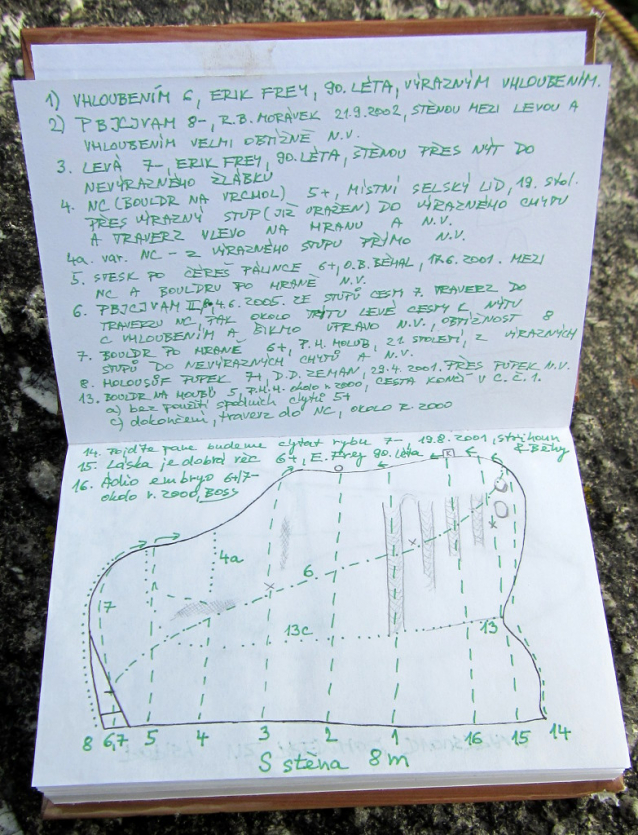 1) VHLOUBENÍM 6, ERIK FREY, 90. LÉTA, VÝRAZNÝM VHLOUBENÍM.
2) PBJCJVAM 8-, R.B. MORÁVEK 21.9.2002, STĚNOU MEZI LEVOU A
VHLOUBENÍM VELMI OBTÍŽNĚ N.V.
3. LEVÁ 7-, ERIK FREY, 90. LÉTA, STĚNOU PŘES NÝT DO
NEVÝRAZNÉHO ŽLÁBKU
4. NC (BOULDR NA VRCHOL) 5+, MÍSTNÍ SELSKÝ LID, 19. STOL.
PŘES VÝRAZNÝ STUP (JIŽ URAŽEN) DO VÝRAZNÉHO CHYTU
A TRAVERZ VLEVO NA HRANU A N.V.
4a. var. NC - Z VÝRAZNÉHO STUPU PŘÍMO N.V.
5. STESK PO ČEREŠ PÁLINCE 6+, O.B. BĚHAL, 17.6.2001. MEZI
NC A BOULDRU PO HRANĚ N.V.
6. PBJCJVAM II, 4.6.2005. ZE STUPŮ CESTY 7. TRAVERZ DO
TRAVERZU NC, PAK OKOLO NÝTU LEVÉ CESTY K NÝTU
C VHLOUBENÍM A ŠIKMO VPRAVO N.V., OBTÍŽNOST 8
7. BOULDR PO HRANĚ 6+, P.H. HOLUB, 21. STOLETÍ, Z VÝRAZNÝCH
STUPŮ DO NEVÝRAZNÝCH CHYTŮ A N.V.
8. HOLOUSŮF PUPEK 7+, D.D. ZEMAN, 29.4.2001. PŘES PUPEK N.V.
13. BOULDR NA HOUBU 5, P.H.H. okolo r. 2000, CESTA KONČÍ V C. Č. 1.
a) bez použití spodních chytů 5+
c) dokončení, traverz do NC, OKOLO R. 2000
14. Pojďte pane budeme chytat rybu 7-, 19.8.2001, Strihoun
& Běhy
15. Láska je dobrá věc 6+, E. Frey 90. léta
16. Adio embryo 6+/7-
okolo r. 2000, BOSS
4a
6
7
13c
13
8 6,7 5 4 3 2 1 16 15 14
S stěna 8 m